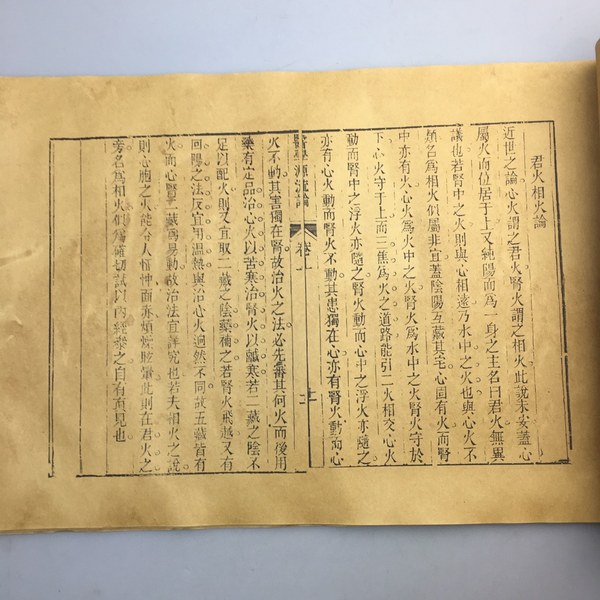 君火相火論
近世之論心火謂之君火腎火謂之相火此說未安蓋心
屬火而位居于上又純陽而爲一身之主名曰君火無異
議也若腎中之火則與心相遠乃水中之火也與心火不
類名爲相火似屬非宜蓋陰陽互藏其宅心固有火而腎
中亦有火心火爲火中之火腎火爲水中之火腎火守於
下心火守于上而三焦爲火之道路能引二火相交心火
動而腎中之浮火亦隨之腎火動而心中之浮火亦隨之
亦有心火動而腎火不動其患獨在心亦有腎火動而心
醫學源流論 卷上 十一
火不動其害獨在腎故治火之法必先審其何火而後用
藥有定品治心火以苦寒治腎火以鹹寒若二藏之陰不
足以配火則又宜取二藏之陰藥補之若腎火飛越又有
回陽之法反宜用溫熱與治心火迥然不同故五藏皆有
火而心腎二藏爲易動故治法宜詳究也若夫相火之說
則心胞之火能令人怔忡面赤煩燥眩暈此則在君火之
旁名爲相火似爲確切試以內經參之自有真見也